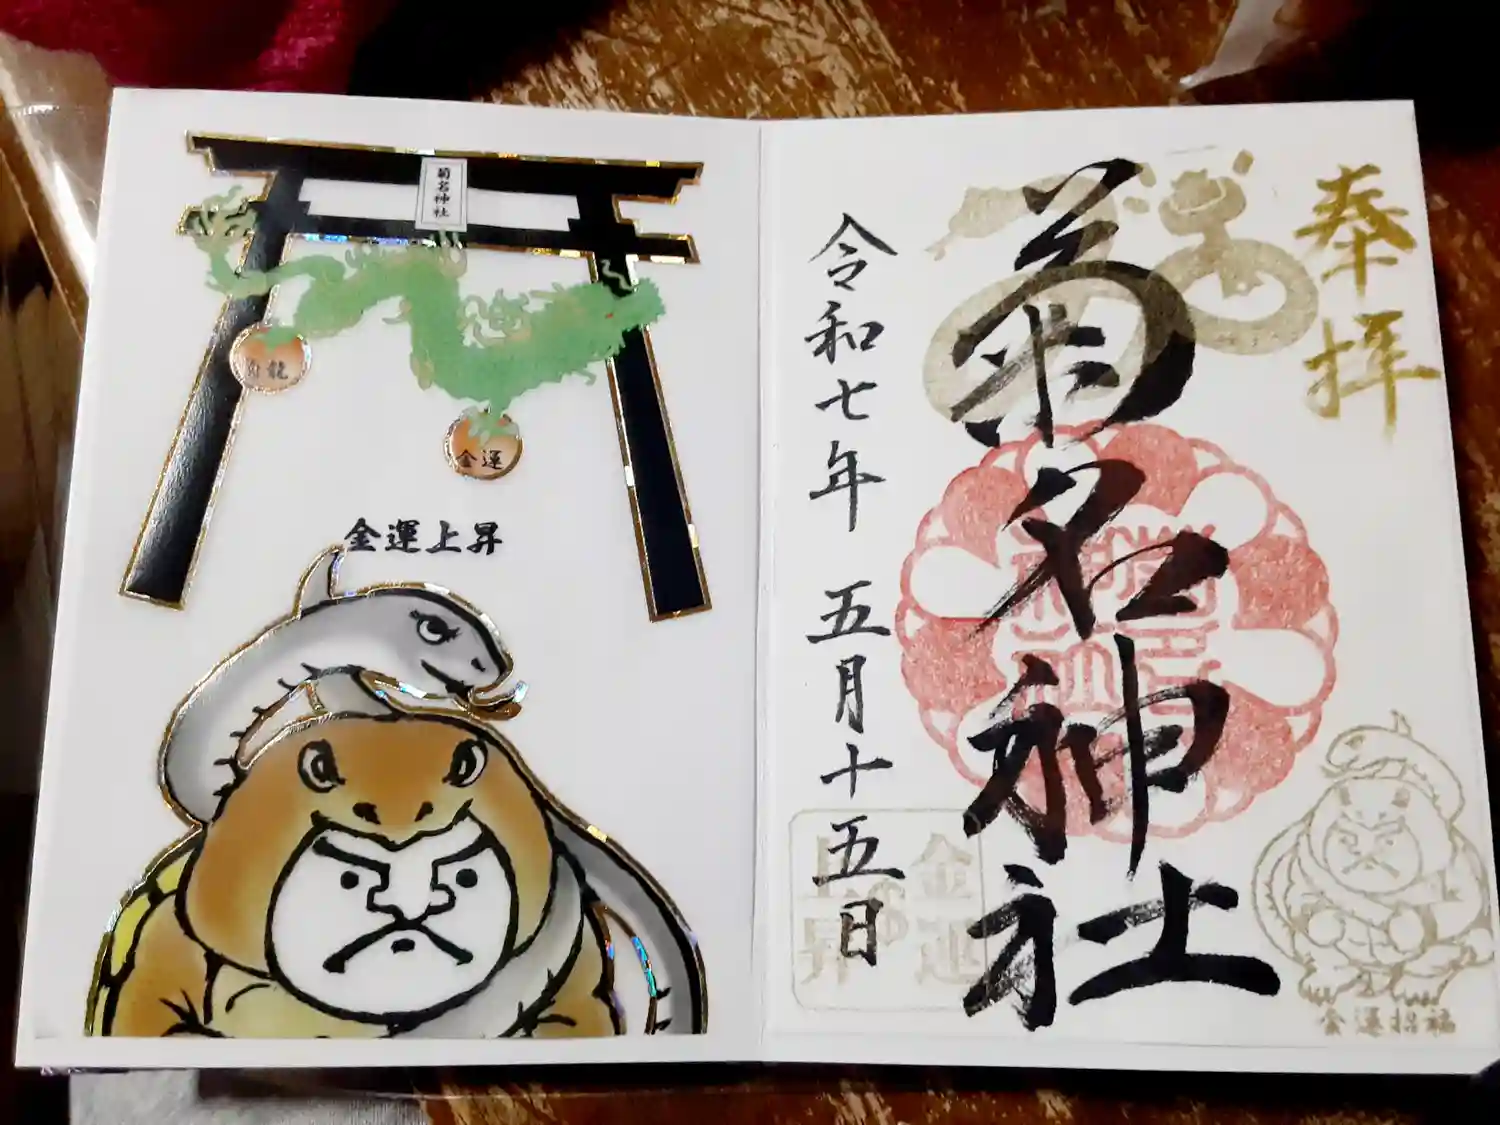 奉拝
菊名神社
令和七年 五月十五日
金運
上昇
金運招福
菊名神社
龍
金運
金運上昇